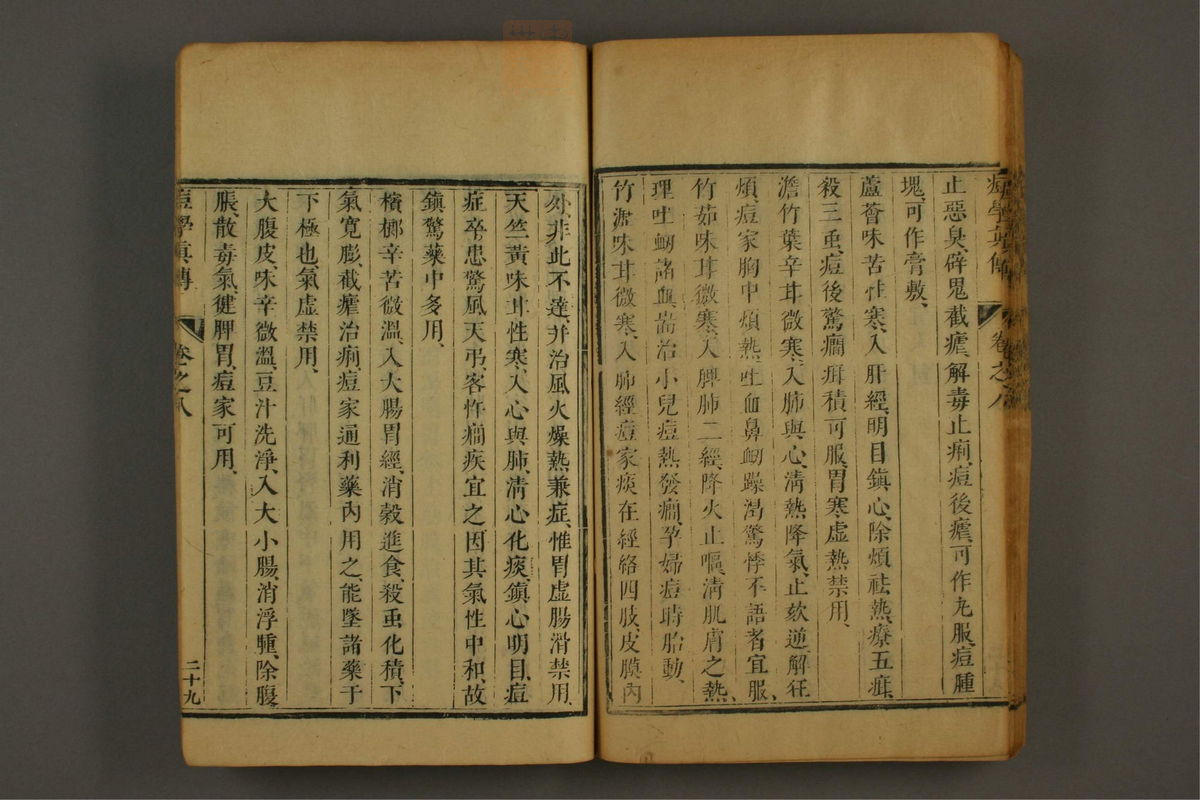 止惡臭、辟鬼截瘧、解毒止痢、痘後瘧、可作丸服、痘腫
塊、可作膏敷、
蘆薈味苦性寒、入肝經、明目鎮心、除煩祛熱、療五疳、
殺三虫、痘後驚癎疳積可服、胃寒虛熱禁用、
澹竹葉辛甘微寒、入肺與心、清熱降氣、止欬逆、解狂
煩、痘家胸中煩熱、吐血鼻衂躁渴驚悸不語者宜服、
竹茹味甘微寒、入脾肺二經、降火止嘔、清肌膚之熱、
理吐衂諸血崩、治小兒痘熱發癎、孕婦痘時胎動、
竹瀝味甘微寒、入肺經、痘家痰在經絡四肢、皮膜內
外、非此不達、并治風火燥熱兼症、惟胃虛腸滑禁用、
天竺黃味甘性寒、入心與肺、清心化痰、鎮心明目、痘
症卒患驚風天弔、客忤癎疾宜之、因其氣性中和、故
鎮驚藥中多用、
檳榔辛苦微溫、入大腸胃經、消穀進食、殺虫化積、下
氣寬膨、截瘧治痢、痘家通利藥內用之、能墜諸藥于
下極也、氣虛禁用、
大腹皮味辛微溫、豆汁洗淨、入大小腸、消浮腫、除腹
脹、散毒氣、健脾胃、痘家可用、
痘學真傳 卷之八 二十九